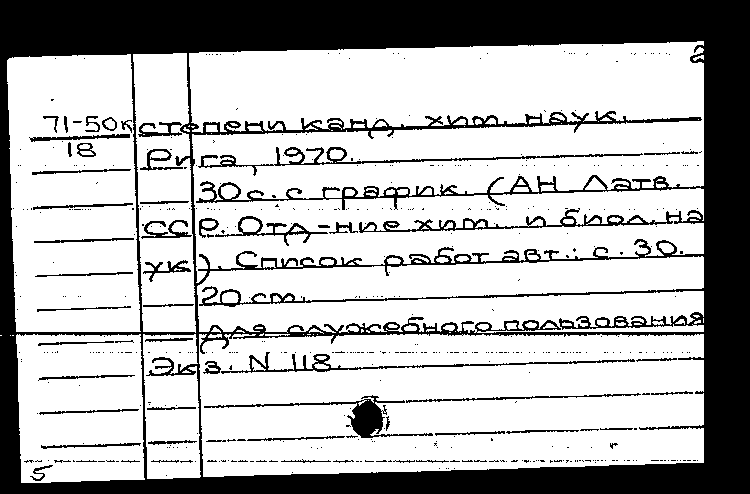 2
71-50к степени канд. хим. наук.
18 Рига, 1970.
30 с. с график. (АН Латв.
ССР. Отд-ние хим. и биол. на
ук). Список работ авт.: с. 30.
20 см.
Для служебного пользования
Экз. N 118.
5